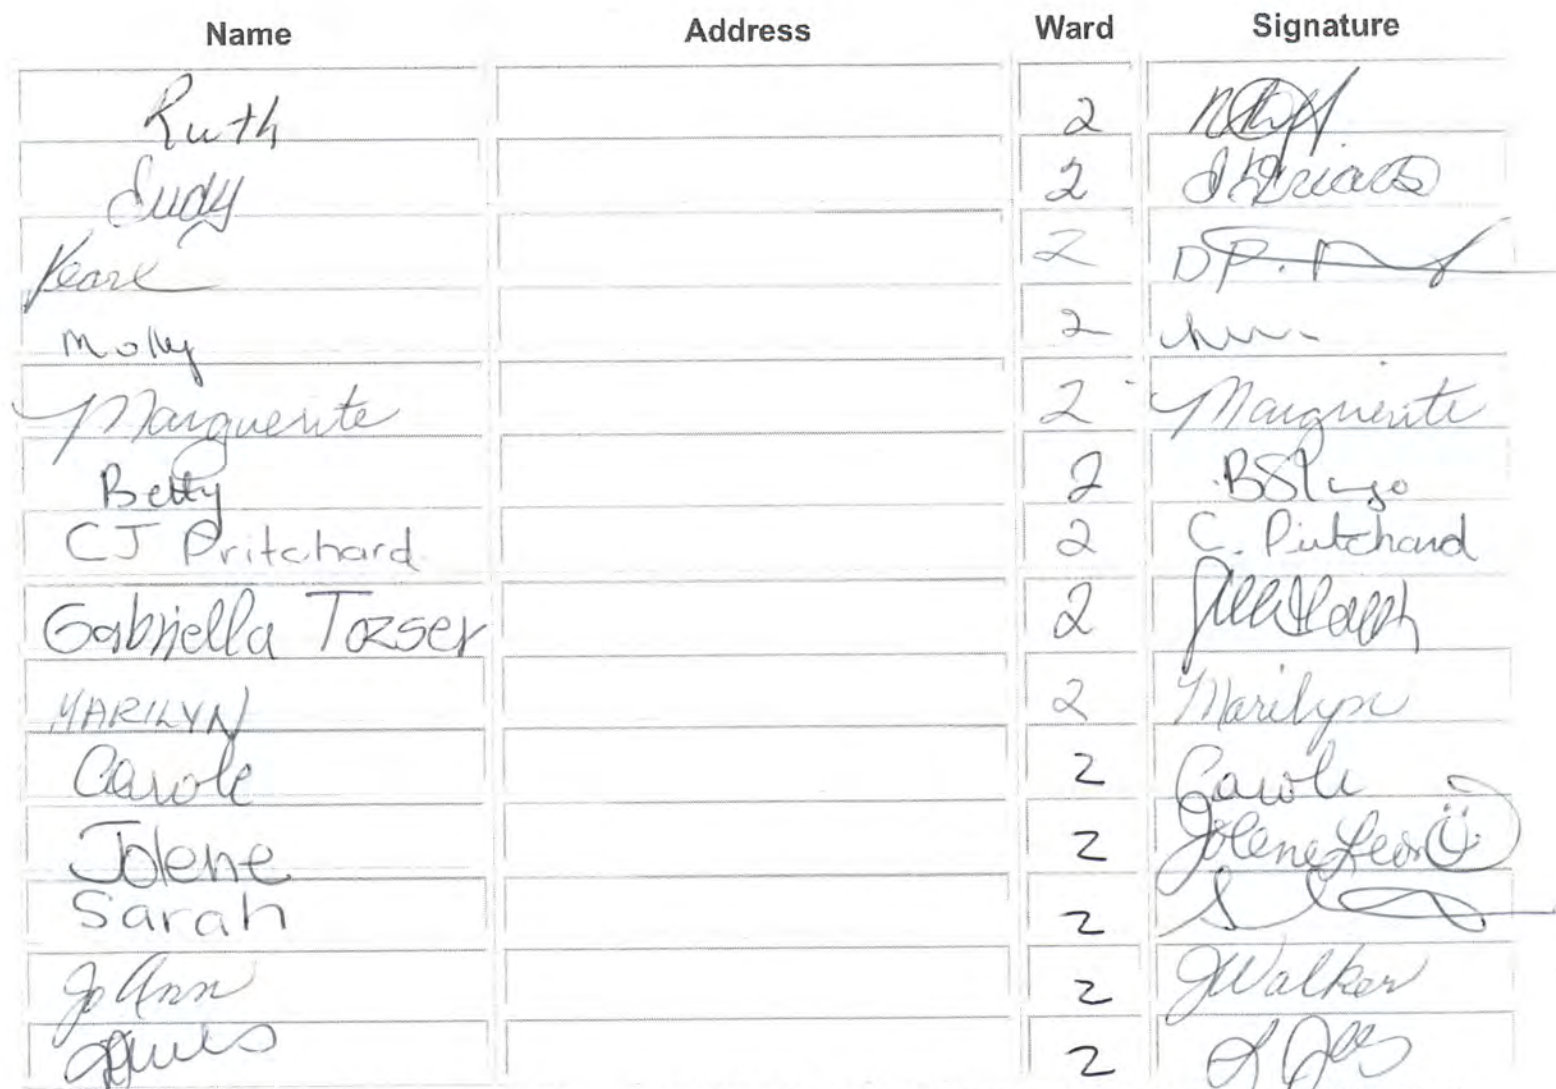 Name Address Ward Signature
Ruth 2
Judy 2
Pearl 2 D P.
Molly 2
Marguerite 2 Marguerite
Betty 2
CJ Pritchard 2 C. Pritchard
Gabriella Tozser 2
MARILYN 2 Marilyn
Carole 2 Carole
Jolene 2 Jolene Leon
Sarah 2
JoAnn 2 JWalker
2